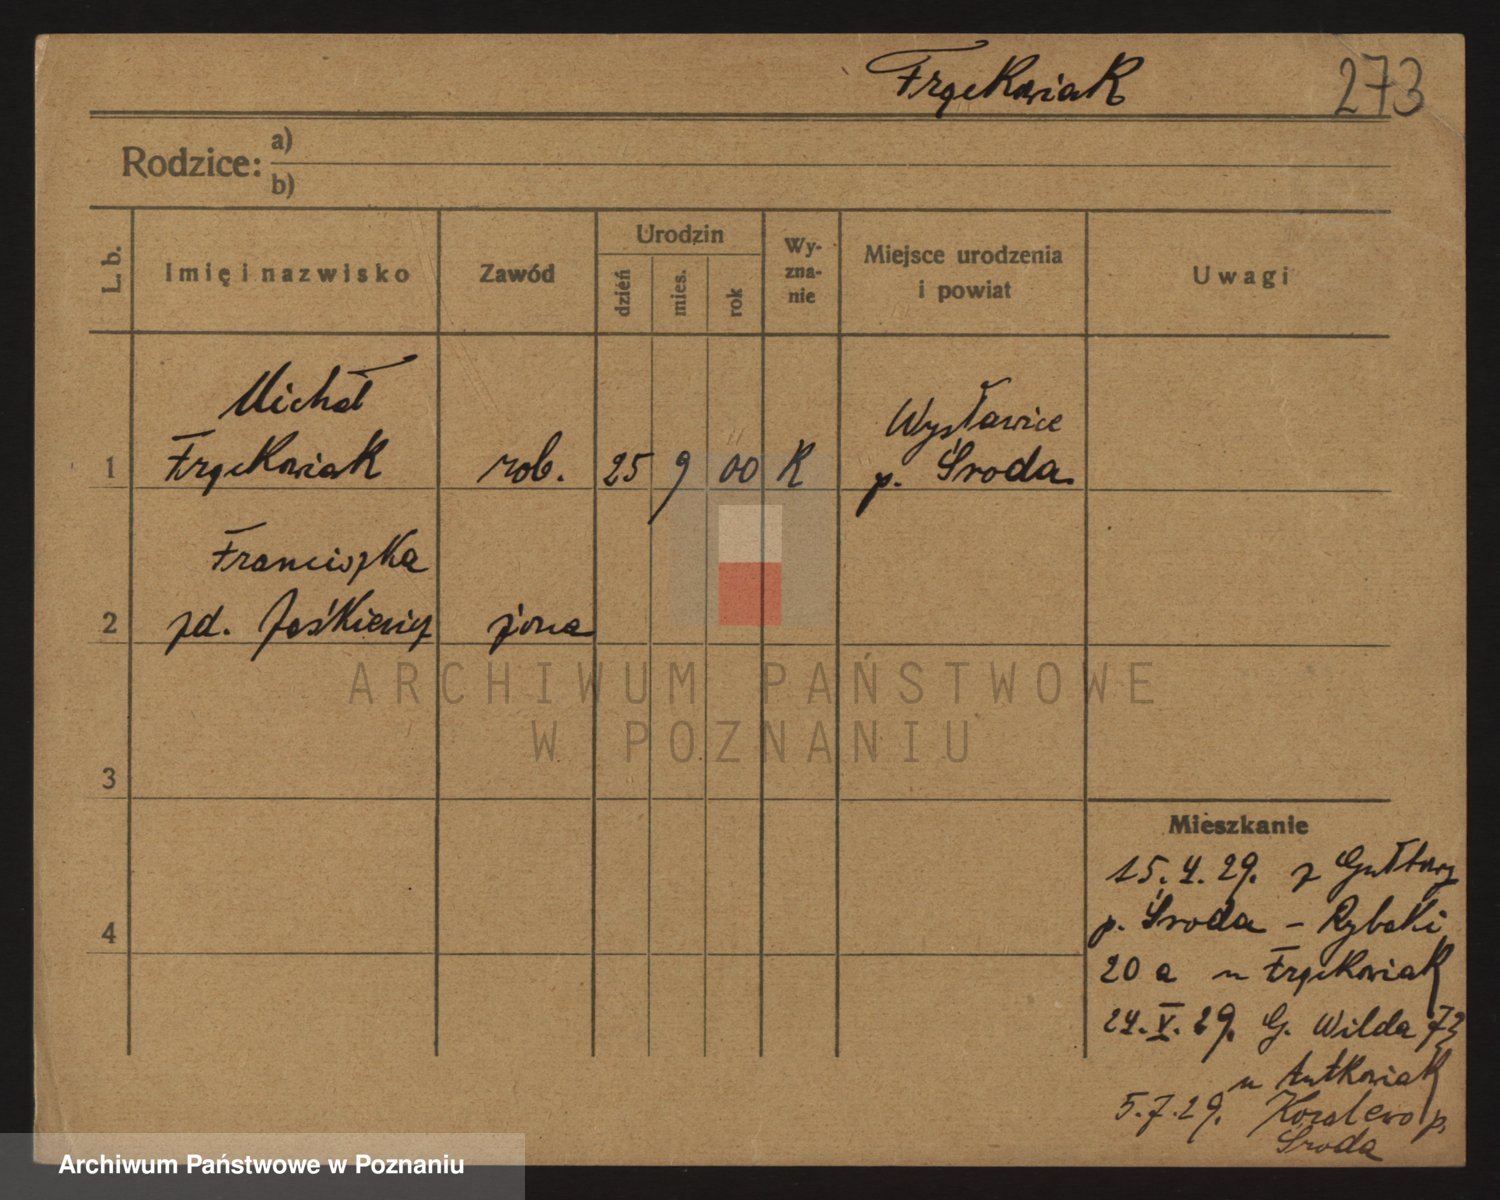 Frąckowiak 273
Rodzice: a)
b)
L. b. Imię i nazwisko Zawód Urodzin dzień mies. rok Wy-zna-nie Miejsce urodzenia i powiat Uwagi
Michał
1 Frąckowiak rob. 25 9 00 K Wysławice
p. Środa
Franciszka
2 zd. Jaśkiewicz żona
ARCHIWUM PAŃSTWOWE
W POZNANIU
3
4
Mieszkanie
15.4.29. z Gułtowy
p. Środa – Rybaki
20 a u Frąckowiak
24.V.29. G. Wilda 73
u Antkowiak
5.7.29. p.
Środa
Archiwum Państwowe w Poznaniu